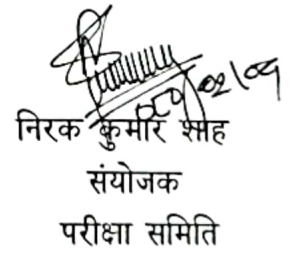 निरक कुमार शाह
संयोजक
परीक्षा समिति